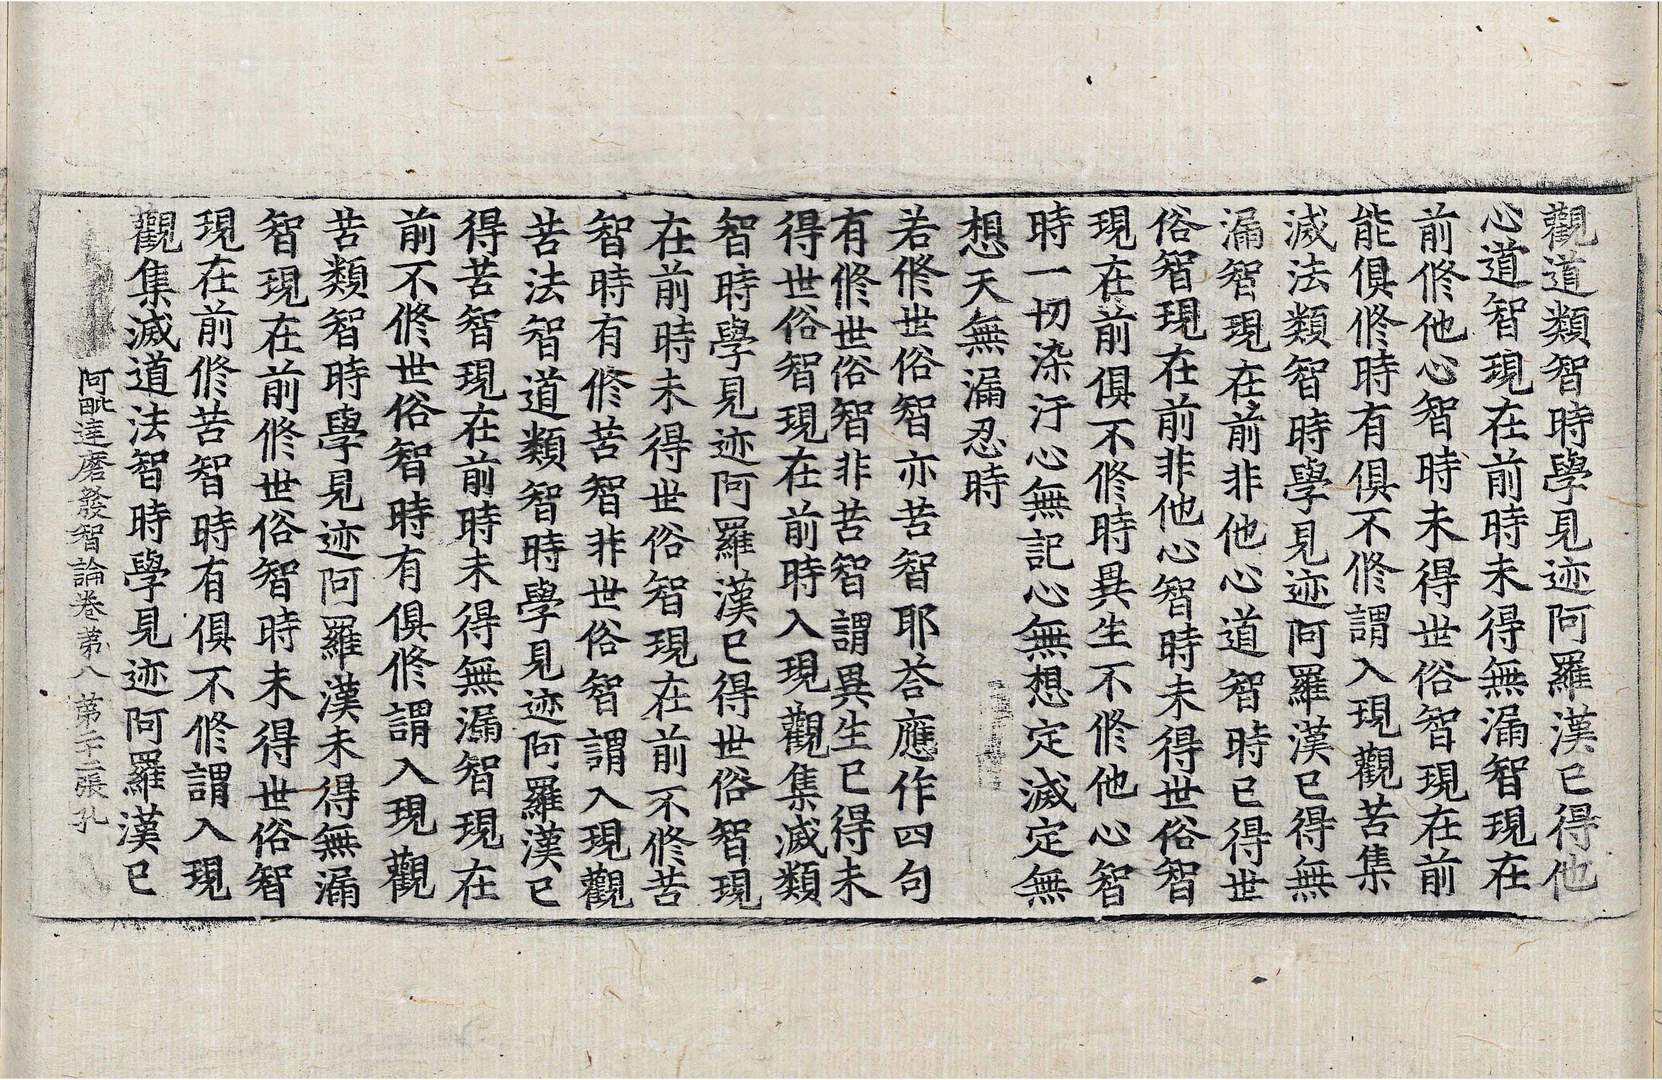 觀道類智時學見迹阿羅漢已得他
心道智現在前時未得無漏智現在
前修他心智時未得世俗智現在前
能俱修時有俱不修謂入現觀苦集
滅法類智時學見迹阿羅漢已得無
漏智現在前非他心道智時已得世
俗智現在前非他心智時未得世俗智
現在前俱不修時異生不修他心智
時一切染汙心無記心無想定滅定無
想天無漏忍時
若修世俗智亦苦智耶荅應作四句
有修世俗智非苦智謂異生已得未
得世俗智現在前時入現觀集滅類
智時學見迹阿羅漢已得世俗智現
在前時未得世俗智現在前不修苦
智時有修苦智非世俗智謂入現觀
苦法智道類智時學見迹阿羅漢已
得苦智現在前時未得無漏智現在
前不修世俗智時有俱修謂入現觀
苦類智時學見迹阿羅漢未得無漏
智現在前修世俗智時未得世俗智
現在前修苦智時有俱不修謂入現
觀集滅道法智時學見迹阿羅漢已
阿毗達磨發智論卷第八 第二十二張 孔